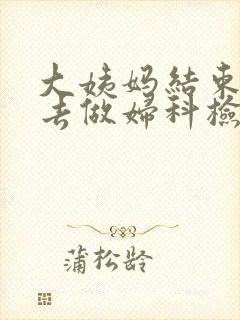 大姨妈結束
去做婦科檢
蒲松龄